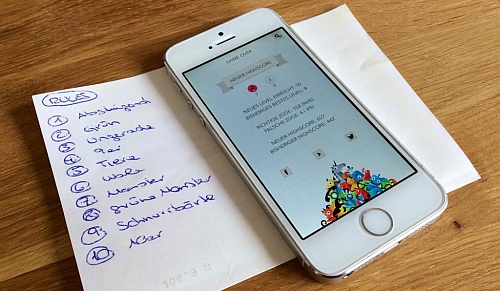 RULES
1 Absteigend
2 Grün
3 Ungerade
4 9er
5 Tiere
6 Wolen
7 Monster
8 grüne Monster
9 Schnurrbärte
10 10er
GAME OVER
NEUER HIGHSCORE
NEUES LEVEL ERREICHT: 10
BISHERIGES BESTES LEVEL: 8
RICHTIGE ZÜGE: 158 (96%)
FALSCHE ZÜGE: 6 (4%)
NEUER HIGHSCORE: 627
BISHERIGER HIGHSCORE: 442